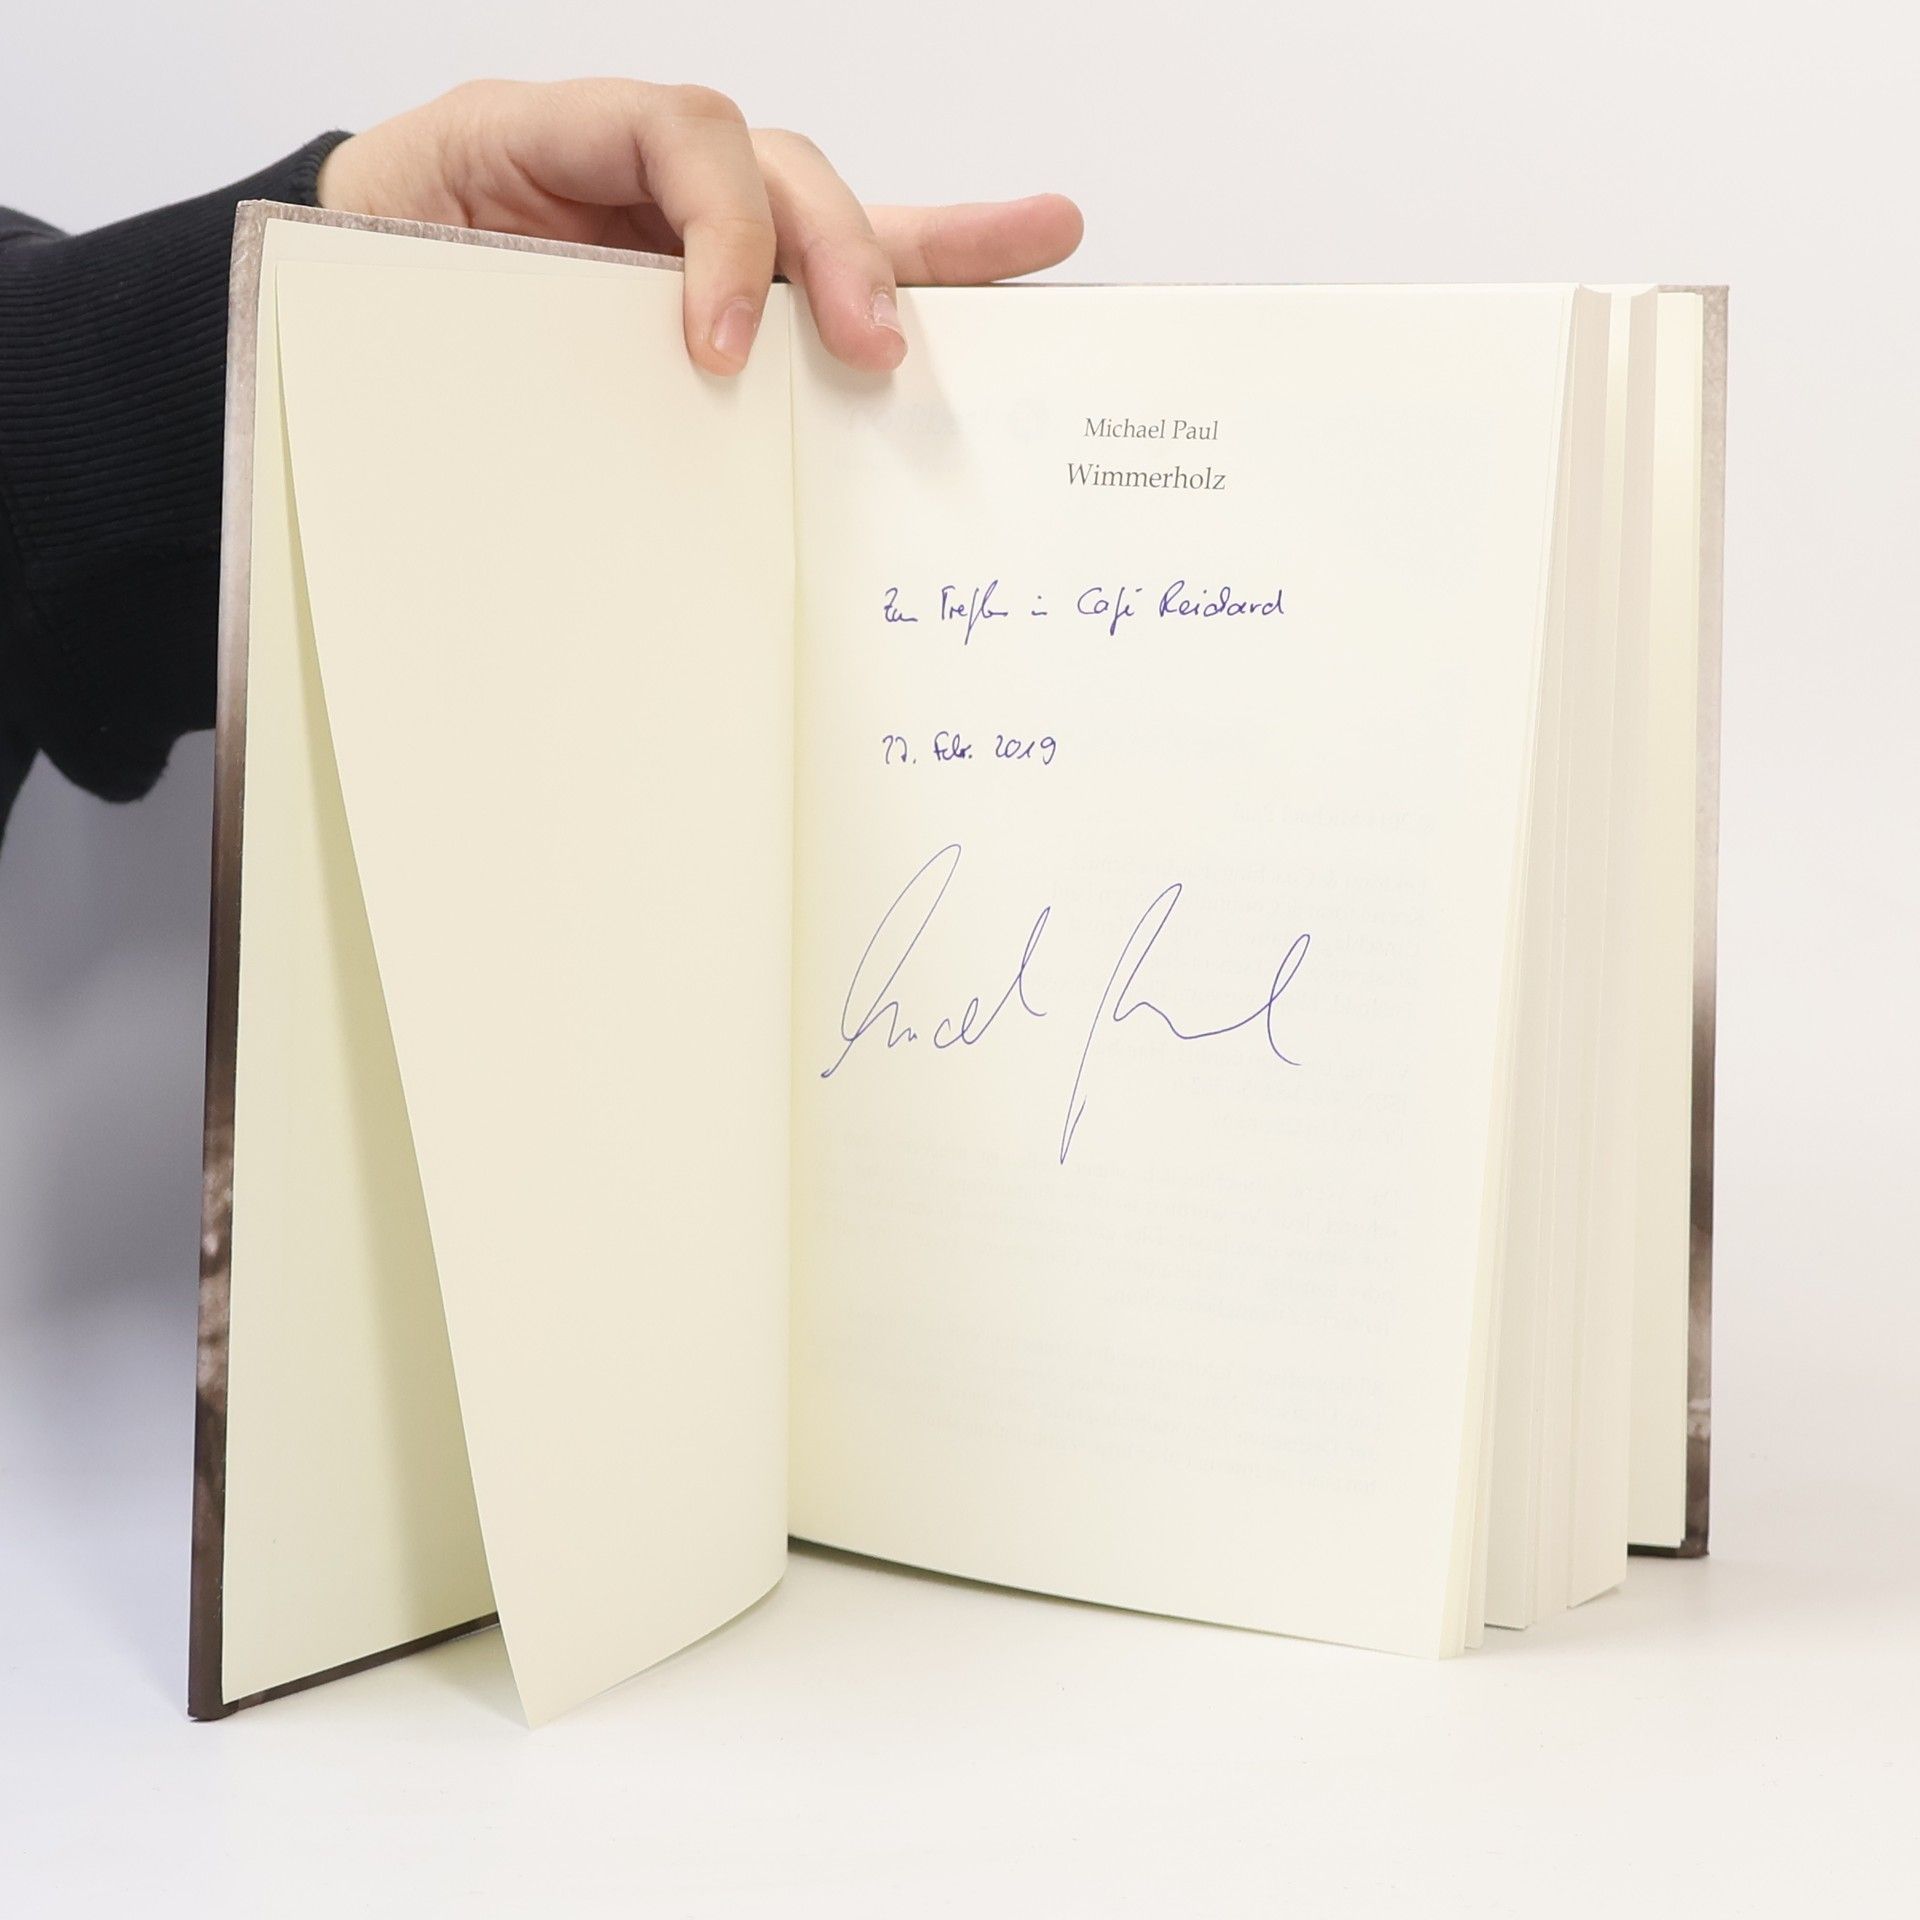 Michael Paul
Wimmerholz
Zum Treffen in Café Reichard
27. Febr. 2019
Michael Paul